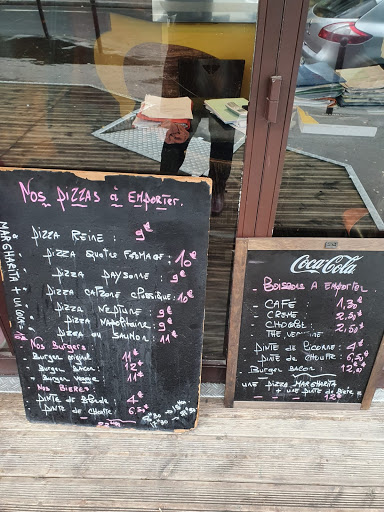 NOS PIZZAS à EMPORTER.
PIZZA REINE : 9€
PIZZA QUATRE FROMAGE : 10€
PIZZA PAYSANNE : 9€
PIZZA CALZONE CLASSIQUE : 10€
PIZZA NEPTUNE : 9€
PIZZA NAPOLITAINE : 9€
PIZZA AU SAUMON : 11€
NOS BURGERS
BURGER ORIGINAL 11€
BURGER BACON : 12€
BURGER VEGGIE 11€
NOS BIERES.
PINTE DE BLONDE 4€
PINTE DE CHOUFFE 6,50€
MARGHARITA +
Coca-Cola
BOISSONS A EMPORTER
CAFÉ : 1,30€
CREME : 2,50€
CHOCOL : 2,50€
THE
PINTE DE LICORNE : 4€
PINTE DE CHOUFFE 6,50€
BURGER BACON : 12,00
UNE PIZZA MARGHARITA
+ UNE PINTE DE BIERE
12€